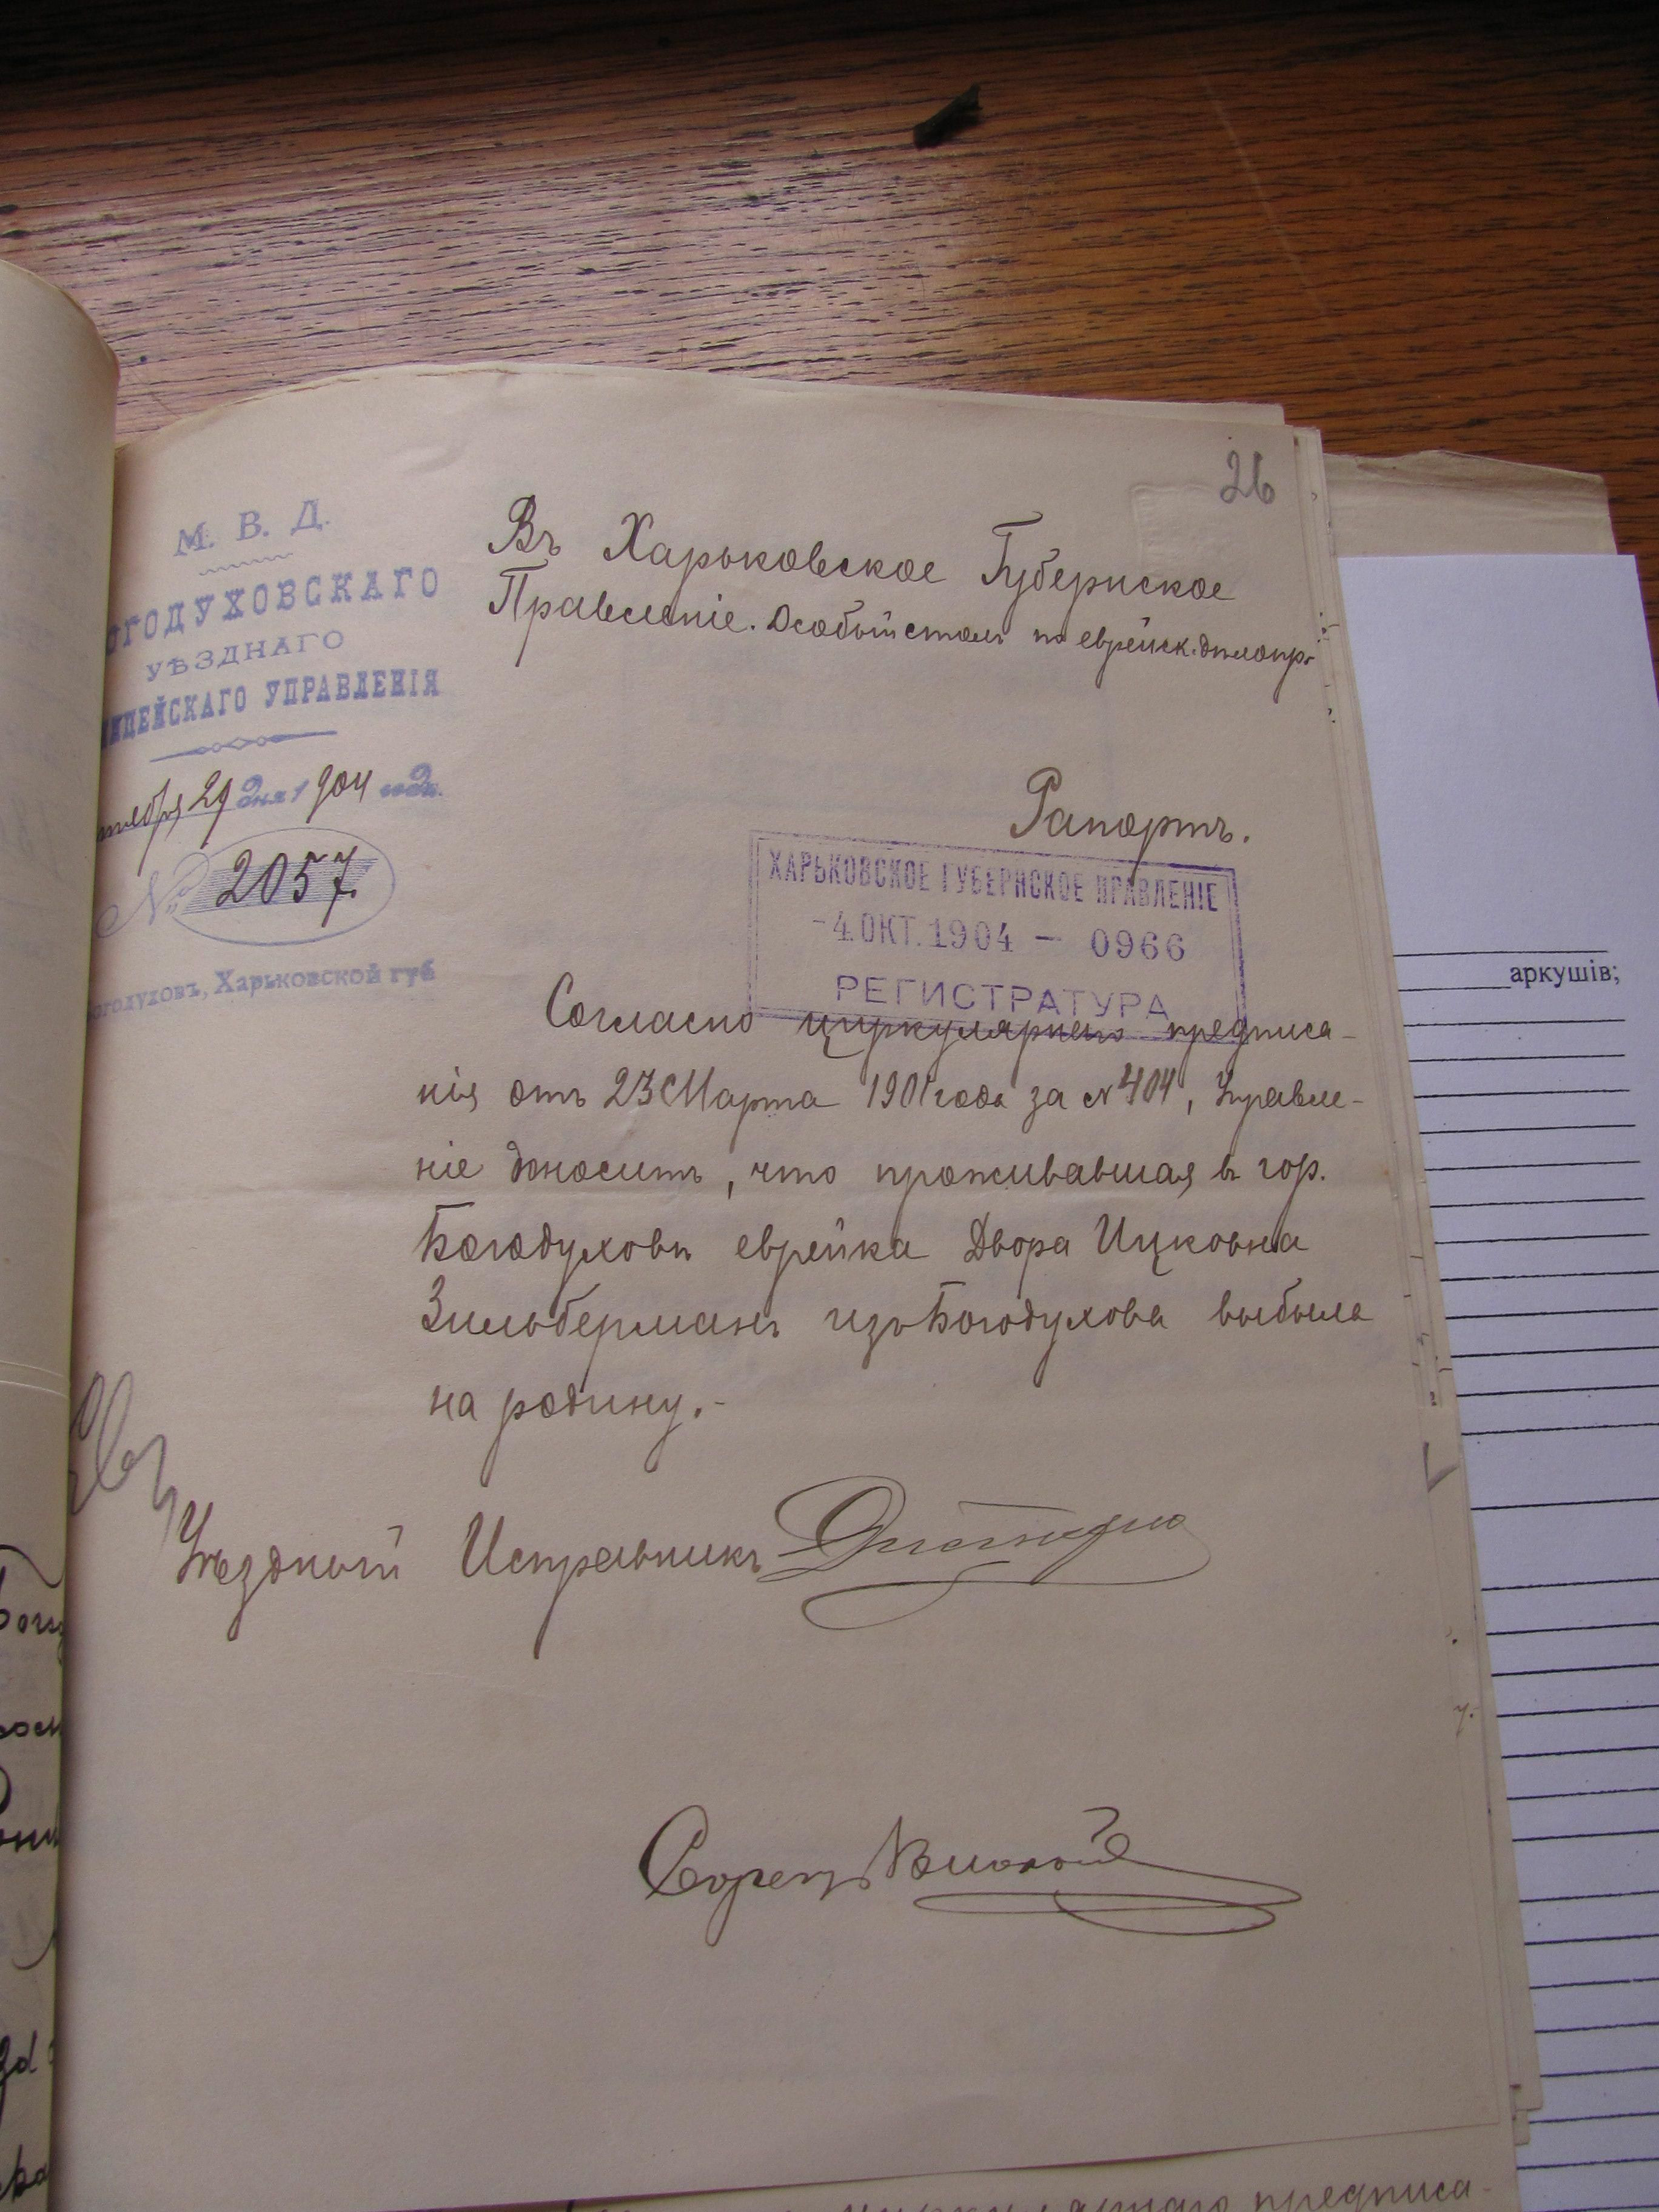 26
М. В. Д.
ОГОДУХОВСКАГО
УѢЗДНАГО
ИЦЕЙСКАГО УПРАВЛЕНІЯ
тября 29 дня 1904 года.
№ 2057.
огодуховъ, Харьковской губ
Въ Харьковское Губернское
Правленіе. Особый столъ по еврейск.
Рапортъ.
ХАРЬКОВСКОЕ ГУБЕРНСКОЕ ПРАВЛЕНІЕ
-4.ОКТ.1904 — 0966
РЕГИСТРАТУРА
Согласно циркулярнаго предписа-
нія отъ 23 Марта 1901 года за № 404, Управле-
ніе доноситъ, что проживавшая въ гор.
Богодуховѣ еврейка Двора Ицковна
Зильберманъ изъ Богодухова выбыла
на родину.-
Уѣздный Исправникъ
аркушів;
предписа-